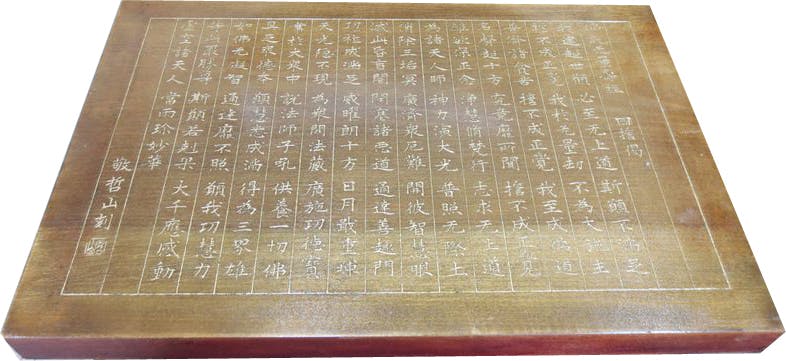 无量壽經 四誓偈
我建超世願 必至无上道 斯願不滿足
誓不成正覺 我於无量劫 不為大施主
普濟諸貧苦 誓不成正覺 我至成佛道
名聲超十方 究竟靡所聞 誓不成正覺
離欲深正念 淨慧脩梵行 志求无上道
為諸天人師 神力演大光 普照无際土
消除三垢冥 廣濟衆厄難 開彼智慧眼
滅此昏盲闇 閉塞諸惡道 通達善趣門
功祚成滿足 威曜朗十方 日月戢重暉
天光隱不現 為衆開法藏 廣施功德寶
常於大衆中 説法師子吼 供養一切佛
具足衆德本 願慧悉成滿 得為三界雄
如佛无礙智 通達靡不照 願我功慧力
等此最勝尊 斯願若剋果 大千應感動
虛空諸天人 當雨珍妙華
敬哲山刻